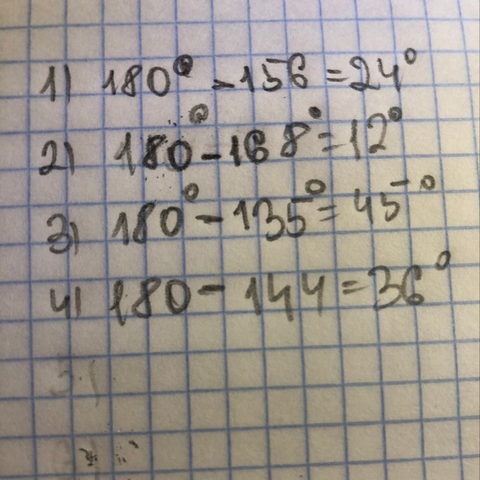 1) 180° - 156 = 24°
2) 180° - 168° = 12°
3) 180° - 135° = 45°
4) 180 - 144 = 36°
5)